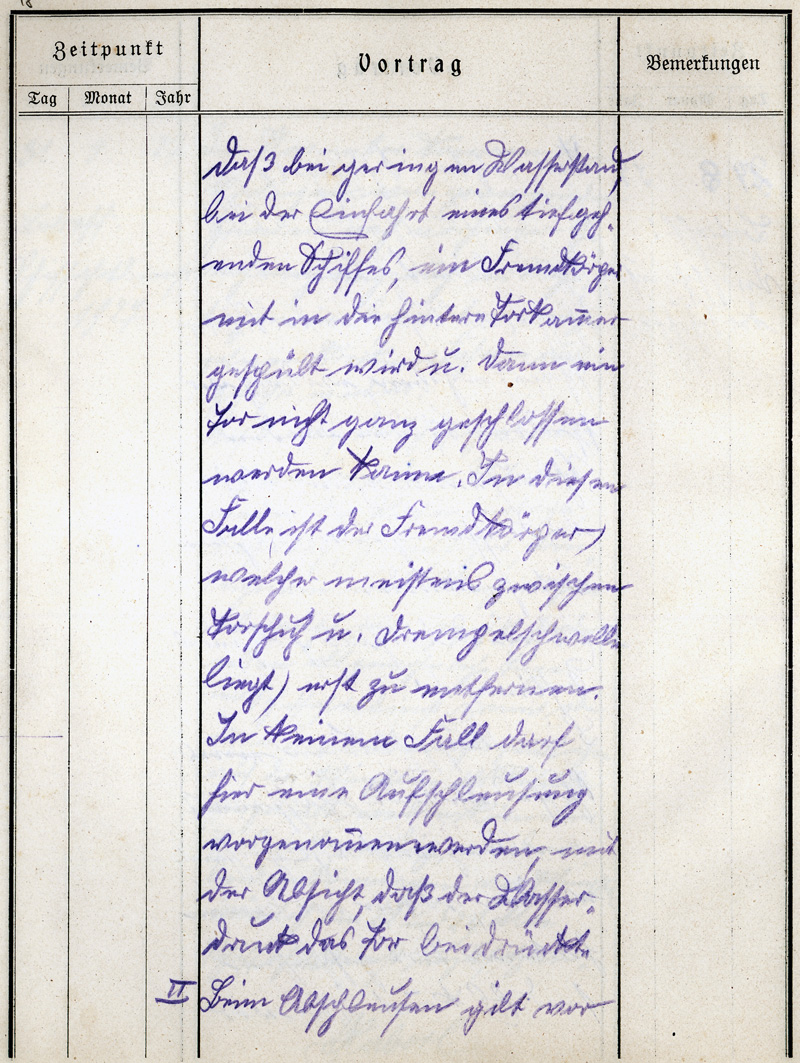 18
Zeitpunkt
Vortrag
Bemerkungen
Tag Monat Jahr
daß bei geringen Wasserstand,
bei der Einfahrt eines tiefgeh-
enden Schiffes, ein Fremdkörper
mit in die hintere Torkam̄er
gespült wird u. dann ein
Tor nicht ganz geschlossen
werden kann. In diesem
Falle ist der Fremdkörper)
welcher meistens zwischen
Torschuh u. Drempelschwelle
liegt) erst zu entfernen.
In keinem Fall darf
hier eine Aufschleusung
vorgenom̄en werden, mit
der Absicht, daß der Wasser-
druck das Tor beidrückt.
II Beim Abschleusen gilt vor